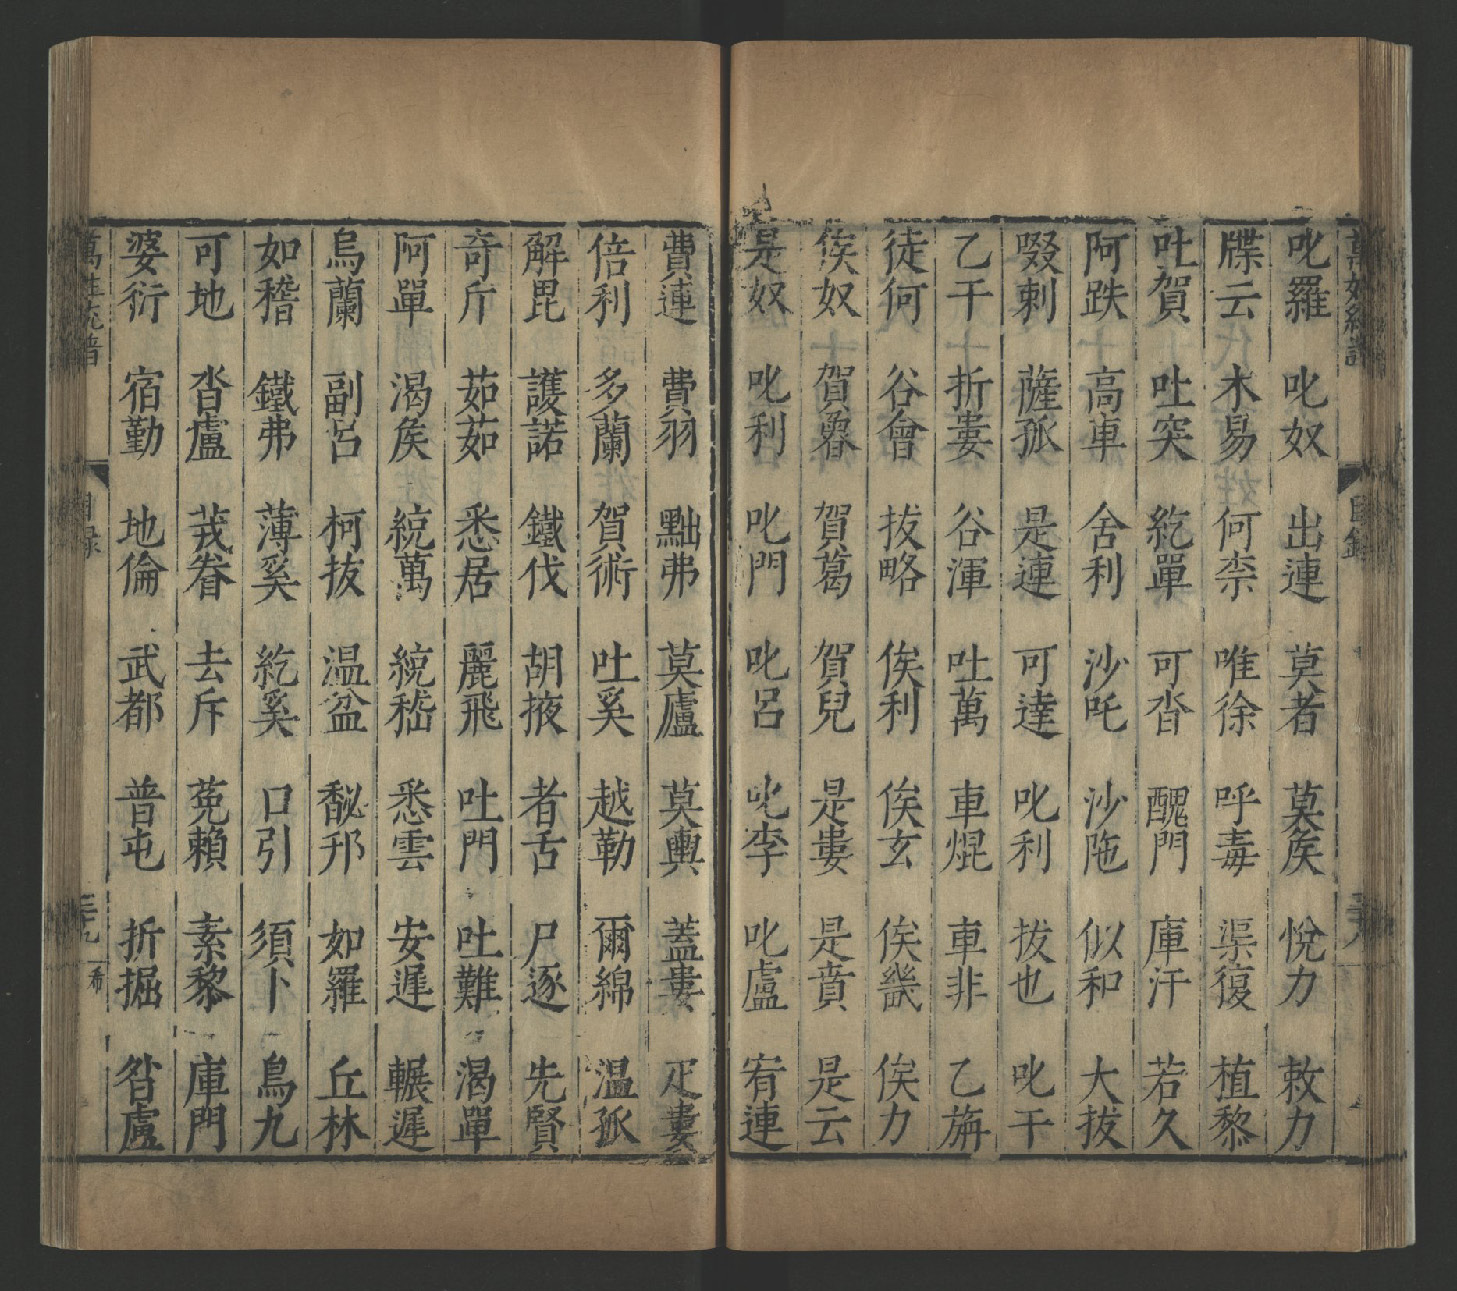 萬姓統譜
目錄
叱羅 叱奴 出連 莫者 莫侯 悅力 敕力
牒云 木易 何柰 唯徐 呼毒 渠復 植黎
吐賀 吐突 紇單 可沓 醜門 庫汗 若久
阿跌 高車 舍利 沙吒 沙陁 似和 大拔
啜剌 薩孤 是連 可達 叱利 拔也 叱干
乙干 折婁 谷渾 吐萬 車焜 車非 乙旃
徒何 谷會 拔略 俟利 俟玄 俟畿 俟力
俟奴 賀魯 賀葛 賀兒 是婁 是賁 是云
是奴 叱利 叱門 叱呂 叱李 叱盧 宥連
費連 費羽 黜弗 莫盧 莫輿 蓋婁 疋婁
倍利 多蘭 賀術 吐奚 越勒 爾綿 溫孤
解毘 護諾 鐵伐 胡掖 者舌 尸逐 先賢
奇斤 茹茹 悉居 麗飛 吐門 吐難 渴單
阿單 渴侯 統萬 統嵇 悉雲 安遲 輾遲
烏蘭 副呂 柯拔 温盆 馝邘 如羅 丘林
如稽 鐵弗 薄奚 紇奚 口引 須卜 鳥九
可地 沓盧 茙眷 去斥 菟賴 素黎 庫門
婆衍 宿勤 地倫 武都 普屯 折掘 沓盧
萬姓統譜
目錄